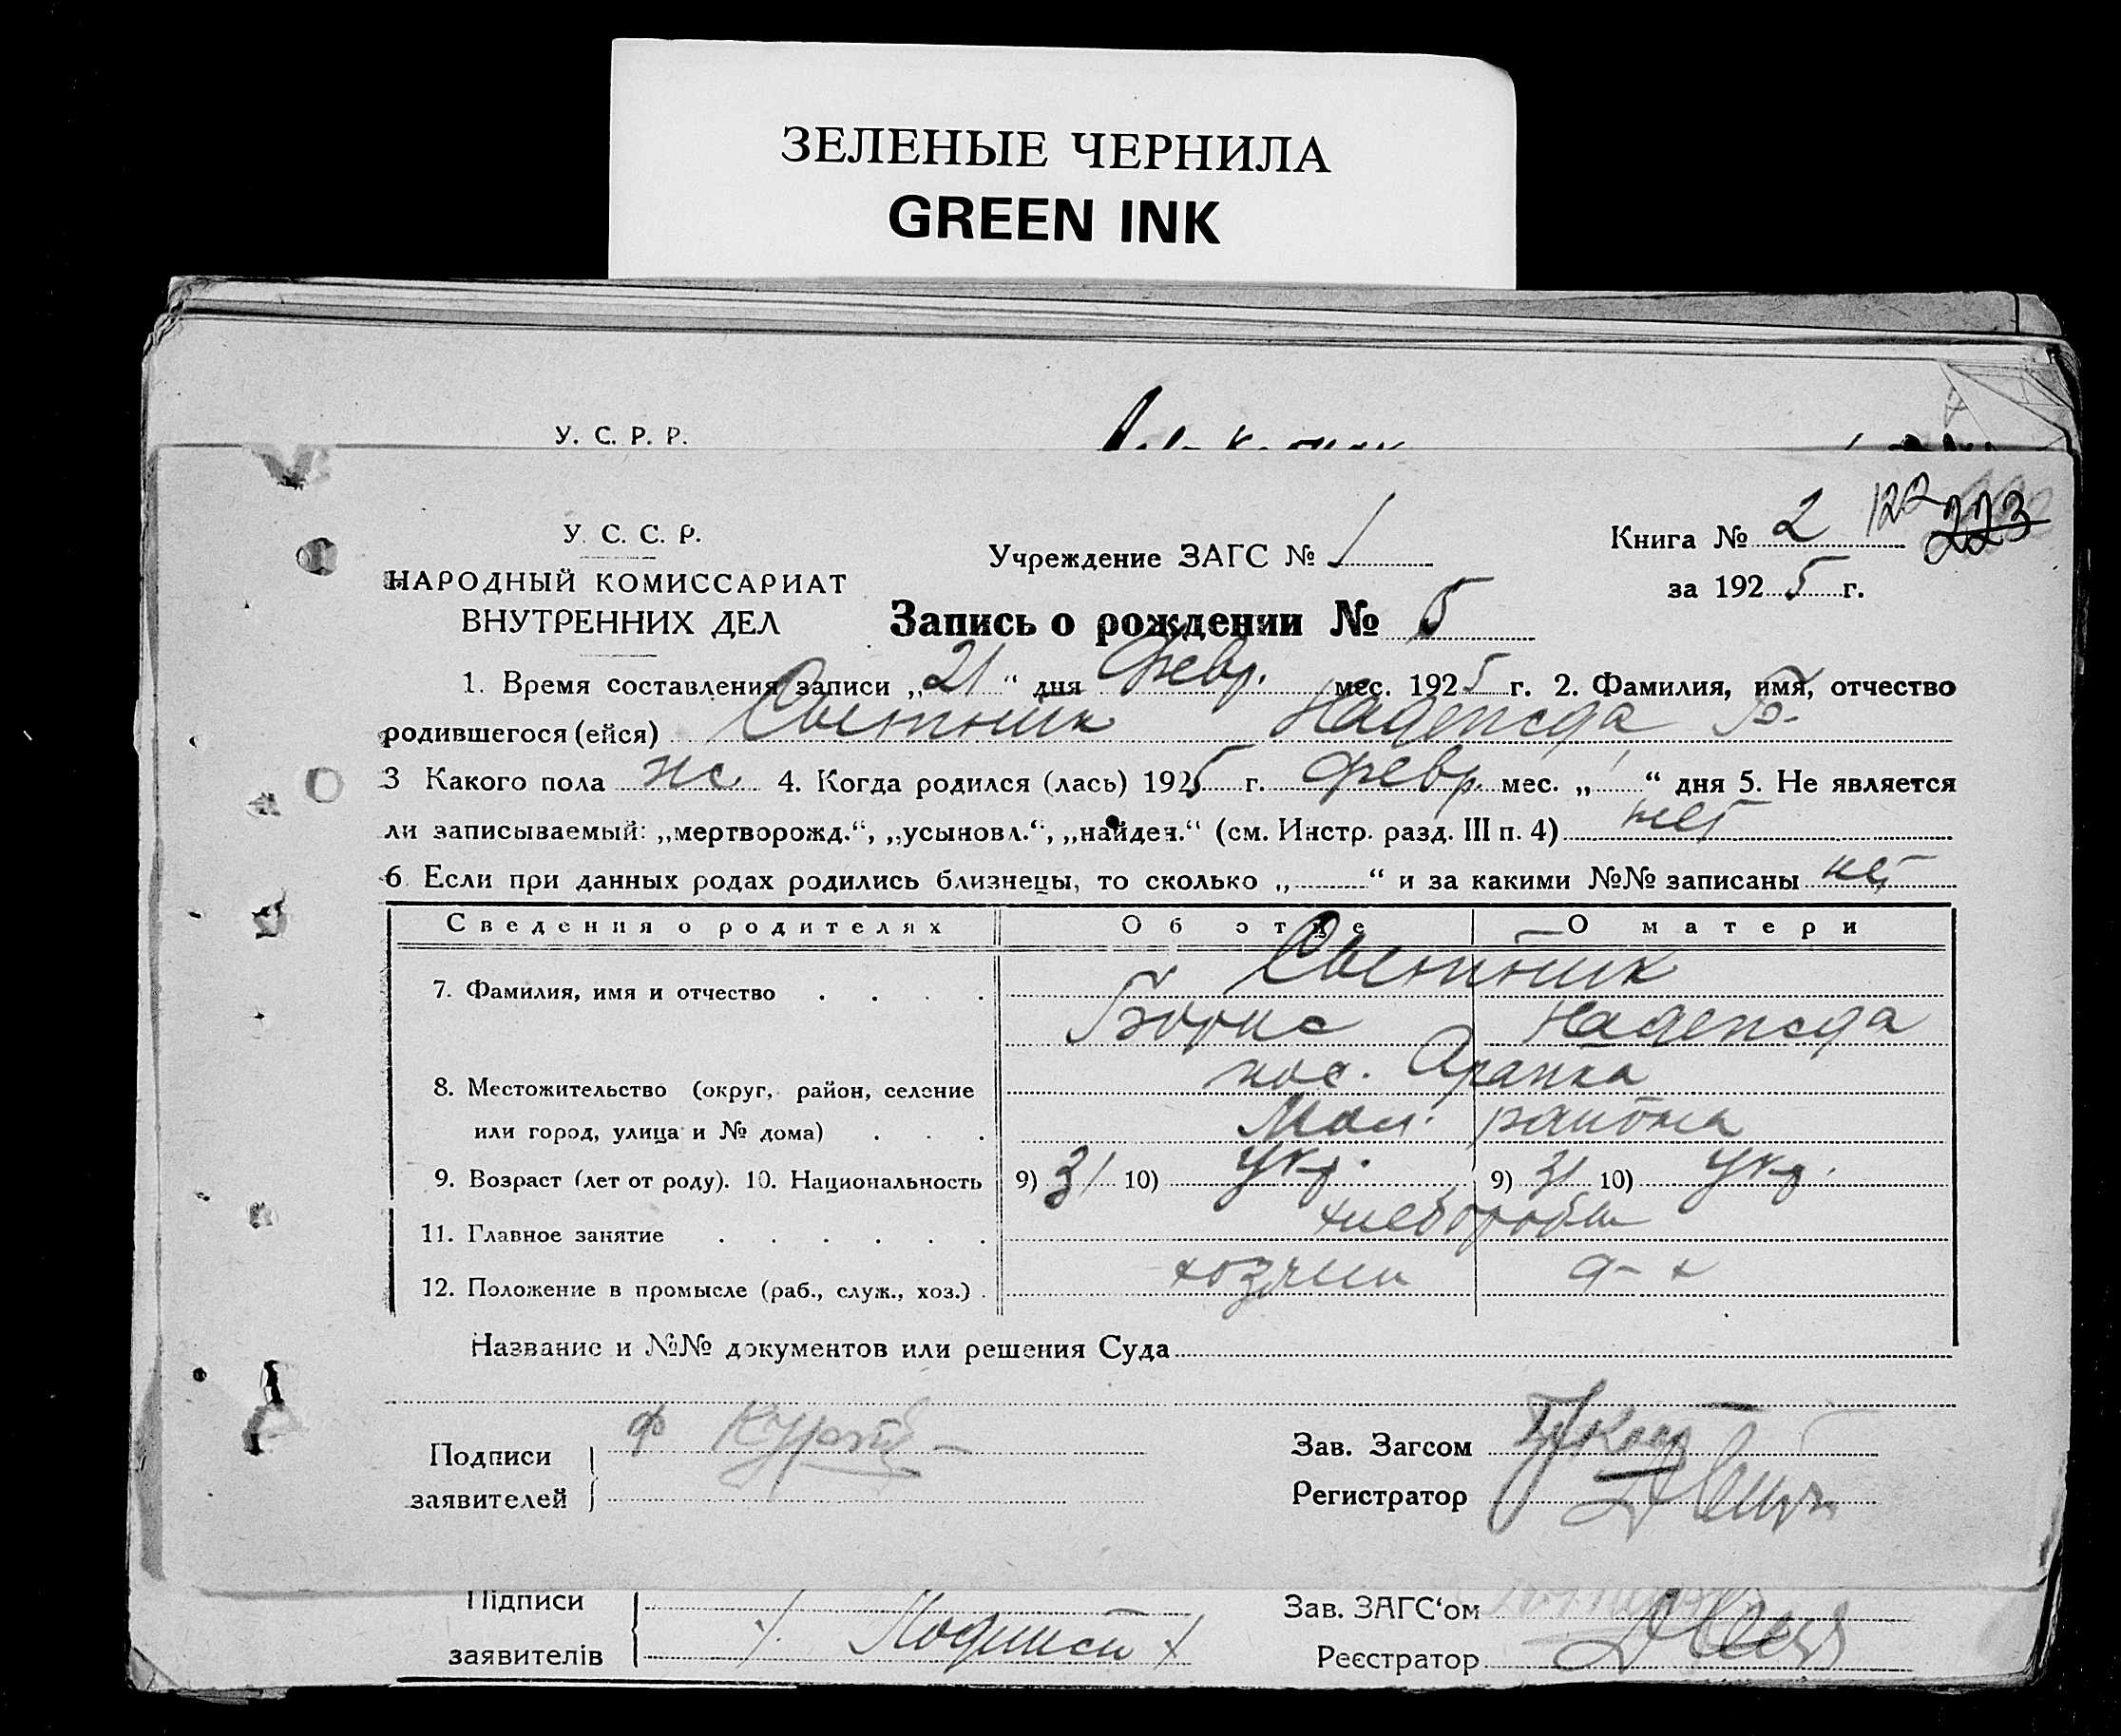 ЗЕЛЕНЫЕ ЧЕРНИЛА
GREEN INK
У. С. Р. Р.
У. С. С. Р.
Учреждение ЗАГС № 1
Книга № 2 122 223
НАРОДНЫЙ КОМИССАРИАТ
за 1925 г.
ВНУТРЕННИХ ДЕЛ
Запись о рождении № 5
1. Время составления записи „21“ дня Февр. мес. 1925 г. 2. Фамилия, имя, отчество
родившегося (ейся) Светник Надежда Б.
3 Какого пола ж 4. Когда родился (лась) 1925 г. февр. мес. „ “ дня 5. Не является
ли записываемый: „мертворожд.“, „усыновл.“, „найден.“ (см. Инстр. разд. III п. 4) нет
6. Если при данных родах родились близнецы, то сколько „ “ и за какими №№ записаны нет
Сведения о родителях Об отце О матери
Светник
7. Фамилия, имя и отчество . . . .
Борис Надежда
пос.
8. Местожительство (округ, район, селение
района
или город, улица и № дома) . . .
9. Возраст (лет от роду). 10. Национальность 9) 31 10) Укр. 9) 31 10) Укр.
хлебороб
11. Главное занятие . . . . . .
хозяин
12. Положение в промысле (раб., служ., хоз.) .
Название и №№ документов или решения Суда
Подписи
заявителей
Зав. Загсом
Регистратор
Підписи
заявителів
Зав. ЗАГС‘ом
Реєстратор